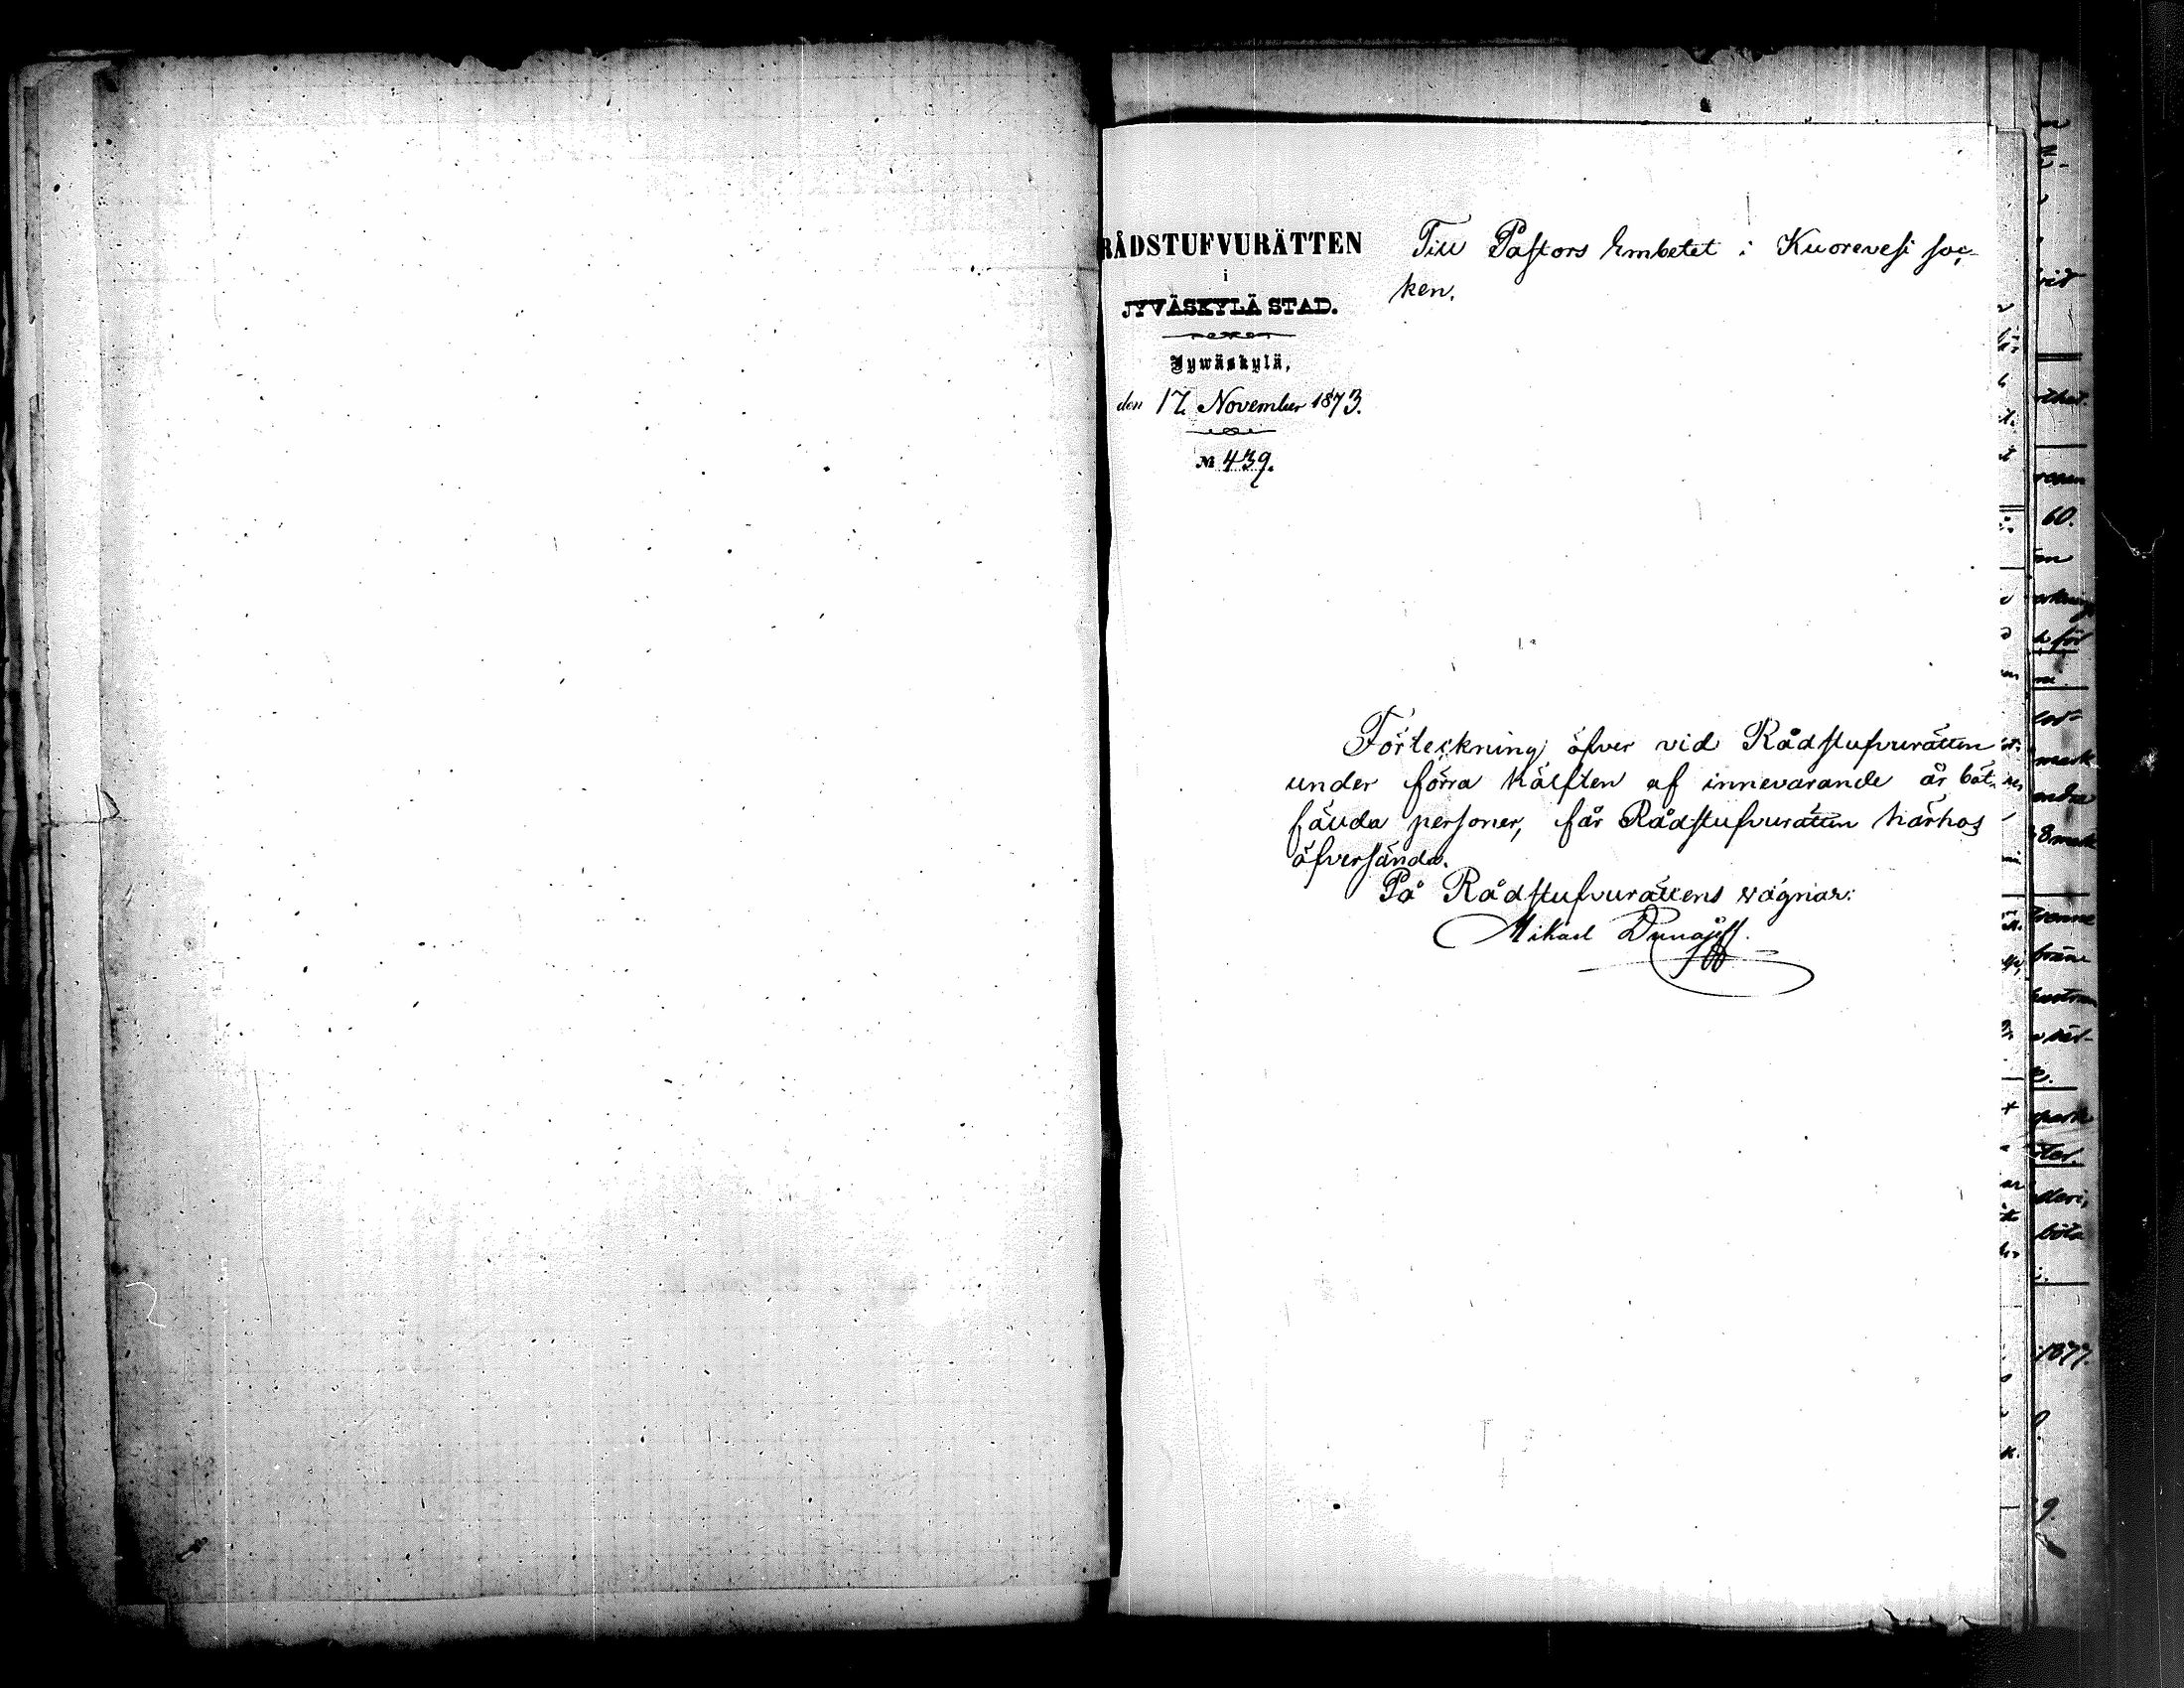 RÅDSTUFVURÄTTEN
i
JYVÄSKYLÄ STAD.
Jywäskylä,
den 17 November 1873.
№ 439.
Till Pastors Embetet i Kuorevesi soc-
ken.
Förteckning öfver vid Rådstufvurätten
under förra hälften af innevarande år böt-
fällda personer, får Rådstufvurätten härhos
öfversända.
På Rådstufvurättens vägnar:
Mikael Dunajeff.
vid
60.
för
mark
andra
8 mark
böta
1877.
9.